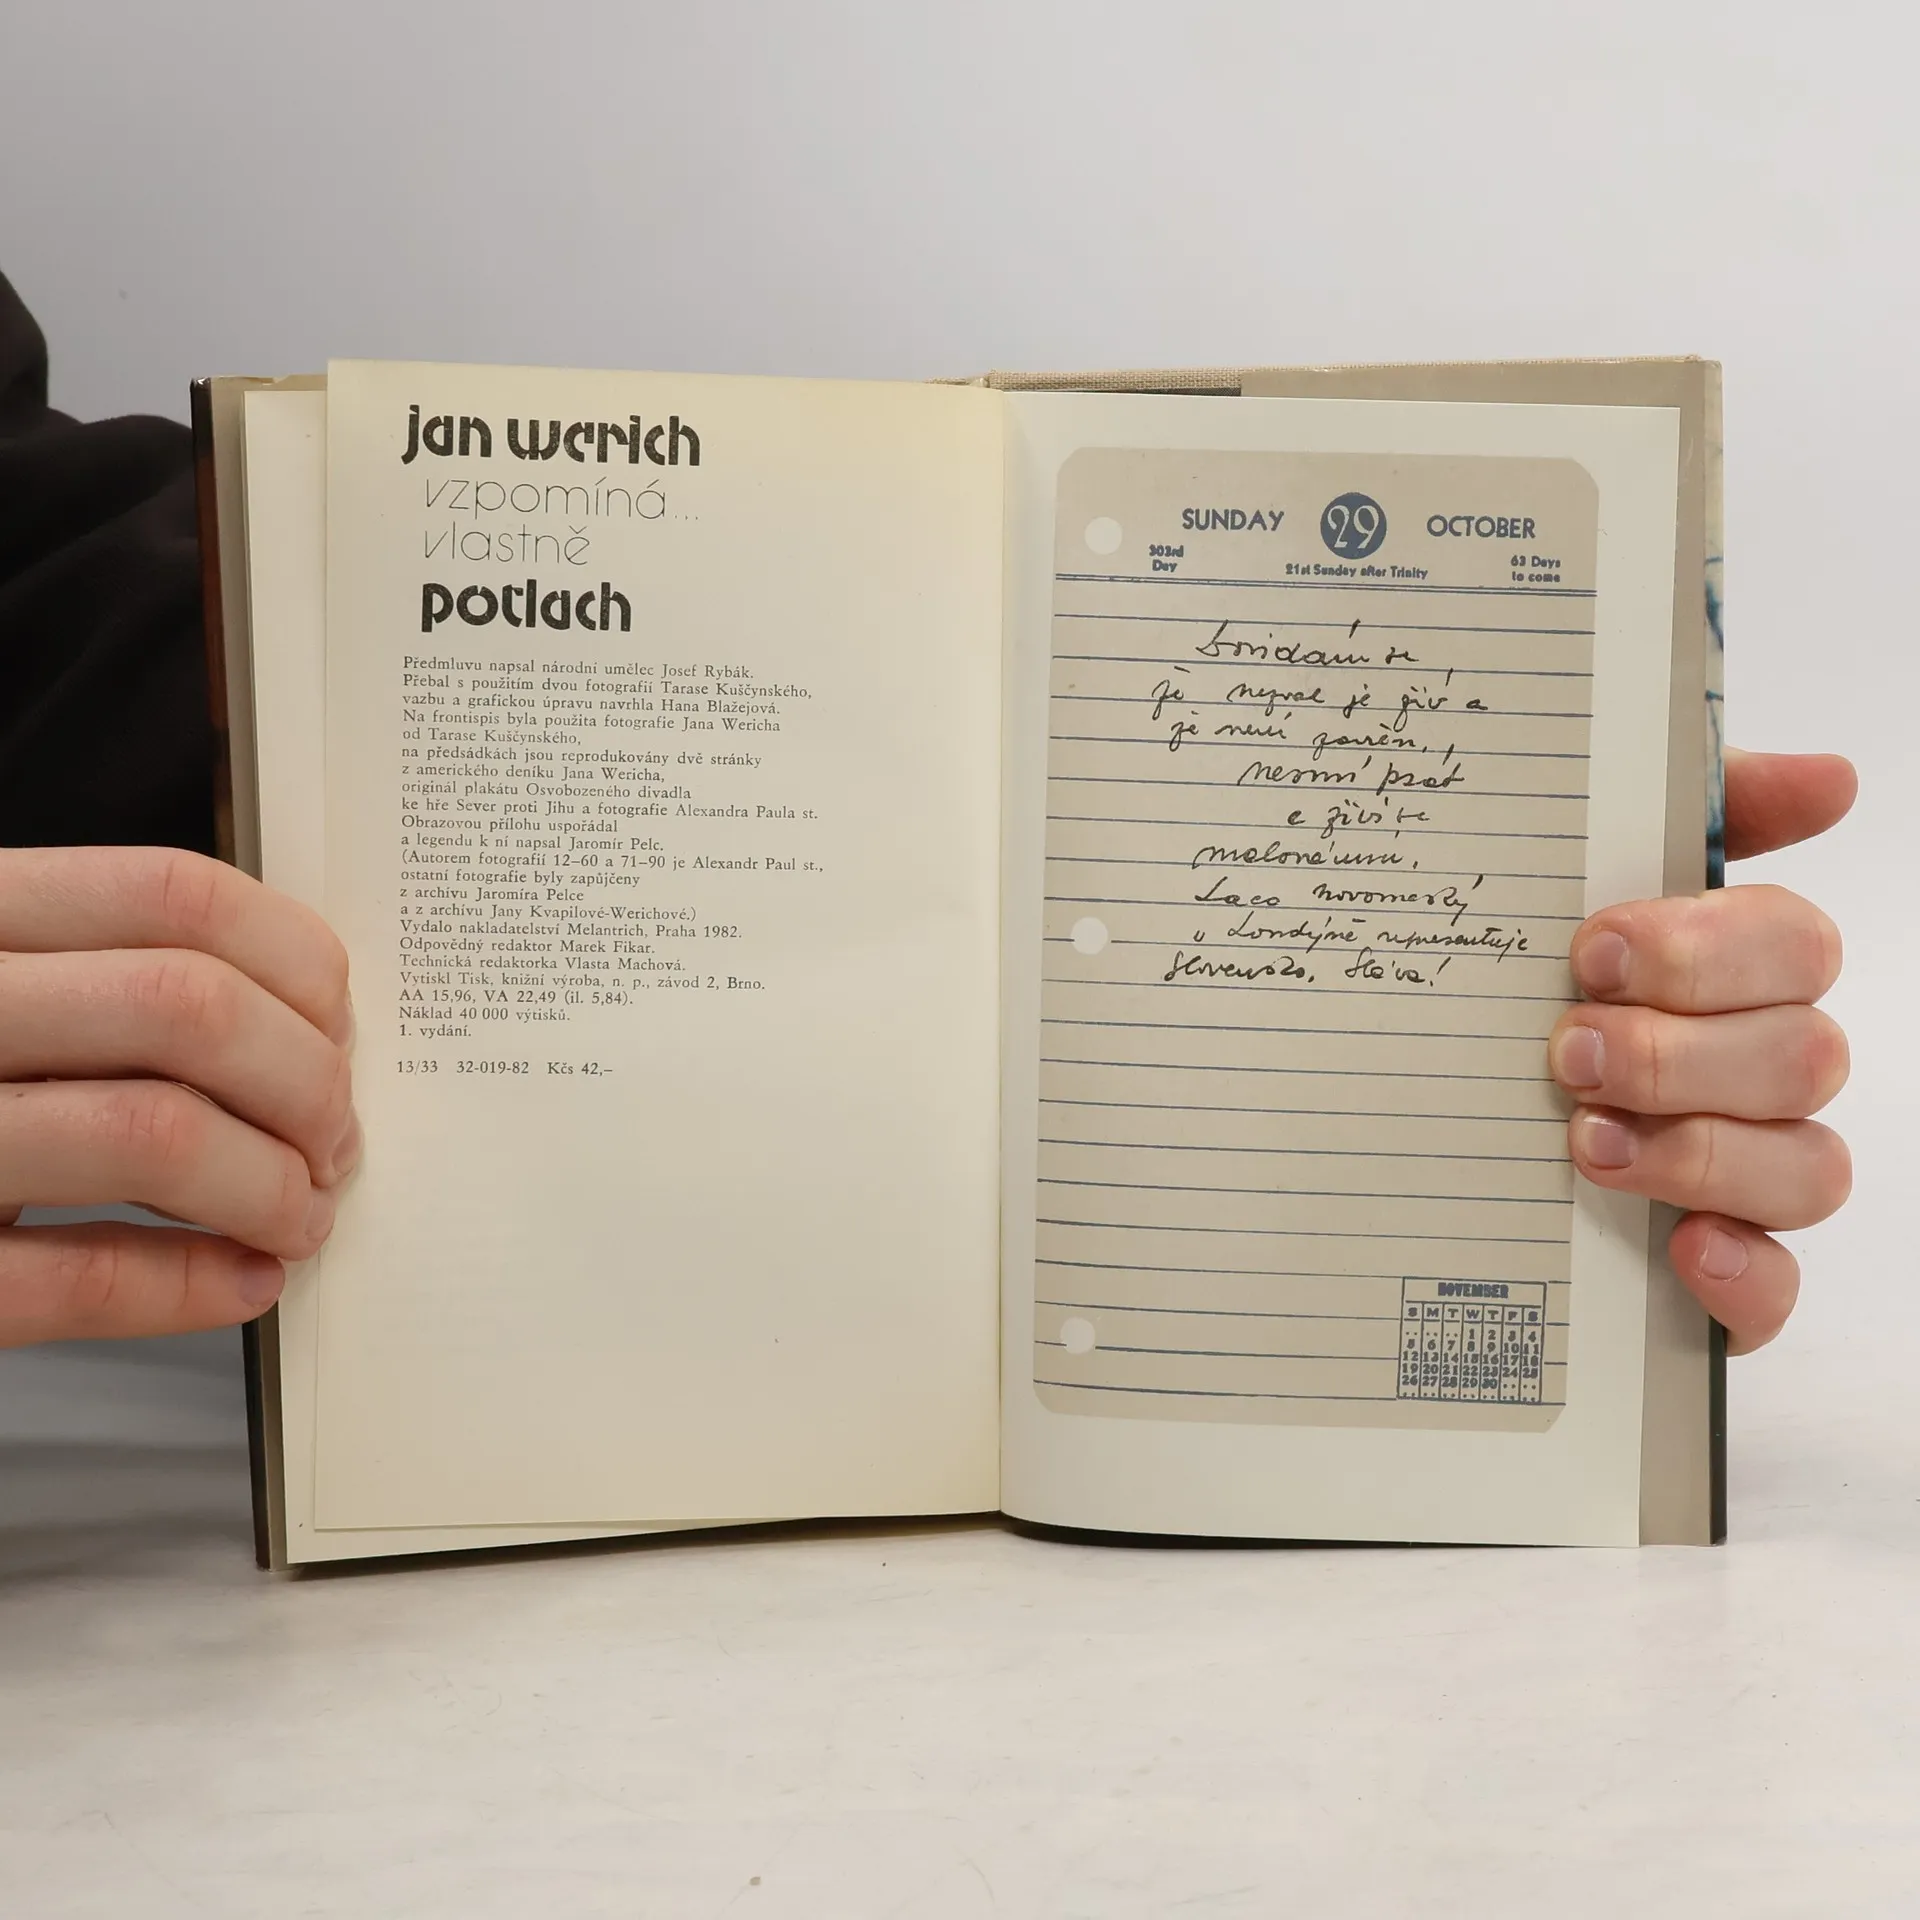 jan werich
vzpomíná...
vlastně
potlach
Předmluvu napsal národní umělec Josef Rybák.
Přebal s použitím dvou fotografií Tarase Kuščynského,
vazbu a grafickou úpravu navrhla Hana Blažejová.
Na frontispis byla použita fotografie Jana Wericha
od Tarase Kuščynského,
na předsádkách jsou reprodukovány dvě stránky
z amerického deníku Jana Wericha,
originál plakátu Osvobozeného divadla
ke hře Sever proti Jihu a fotografie Alexandra Paula st.
Obrazovou přílohu uspořádal
a legendu k ní napsal Jaromír Pelc.
(Autorem fotografií 12–60 a 71–90 je Alexandr Paul st.,
ostatní fotografie byly zapůjčeny
z archívu Jaromíra Pelce
a z archívu Jany Kvapilové-Werichové.)
Vydalo nakladatelství Melantrich, Praha 1982.
Odpovědný redaktor Marek Fikar.
Technická redaktorka Vlasta Machová.
Vytiskl Tisk, knižní výroba, n. p., závod 2, Brno.
AA 15,96, VA 22,49 (il. 5,84).
Náklad 40 000 výtisků.
1. vydání.
13/33 32-019-82 Kčs 42,–
SUNDAY 29 OCTOBER
303rd Day 21st Sunday after Trinity 63 Days to come
Dovídám se
že nezval je živ a
že není zavřen,
nesmí psát
a živí se
malováním.
Laco novomeský
v Londýně representuje
Slovensko. Sláva!
NOVEMBER
S M T W T F S
.. .. .. 1 2 3 4
5 6 7 8 9 10 11
12 13 14 15 16 17 18
19 20 21 22 23 24 25
26 27 28 29 30 .. ..
.. .. .. .. .. .. ..